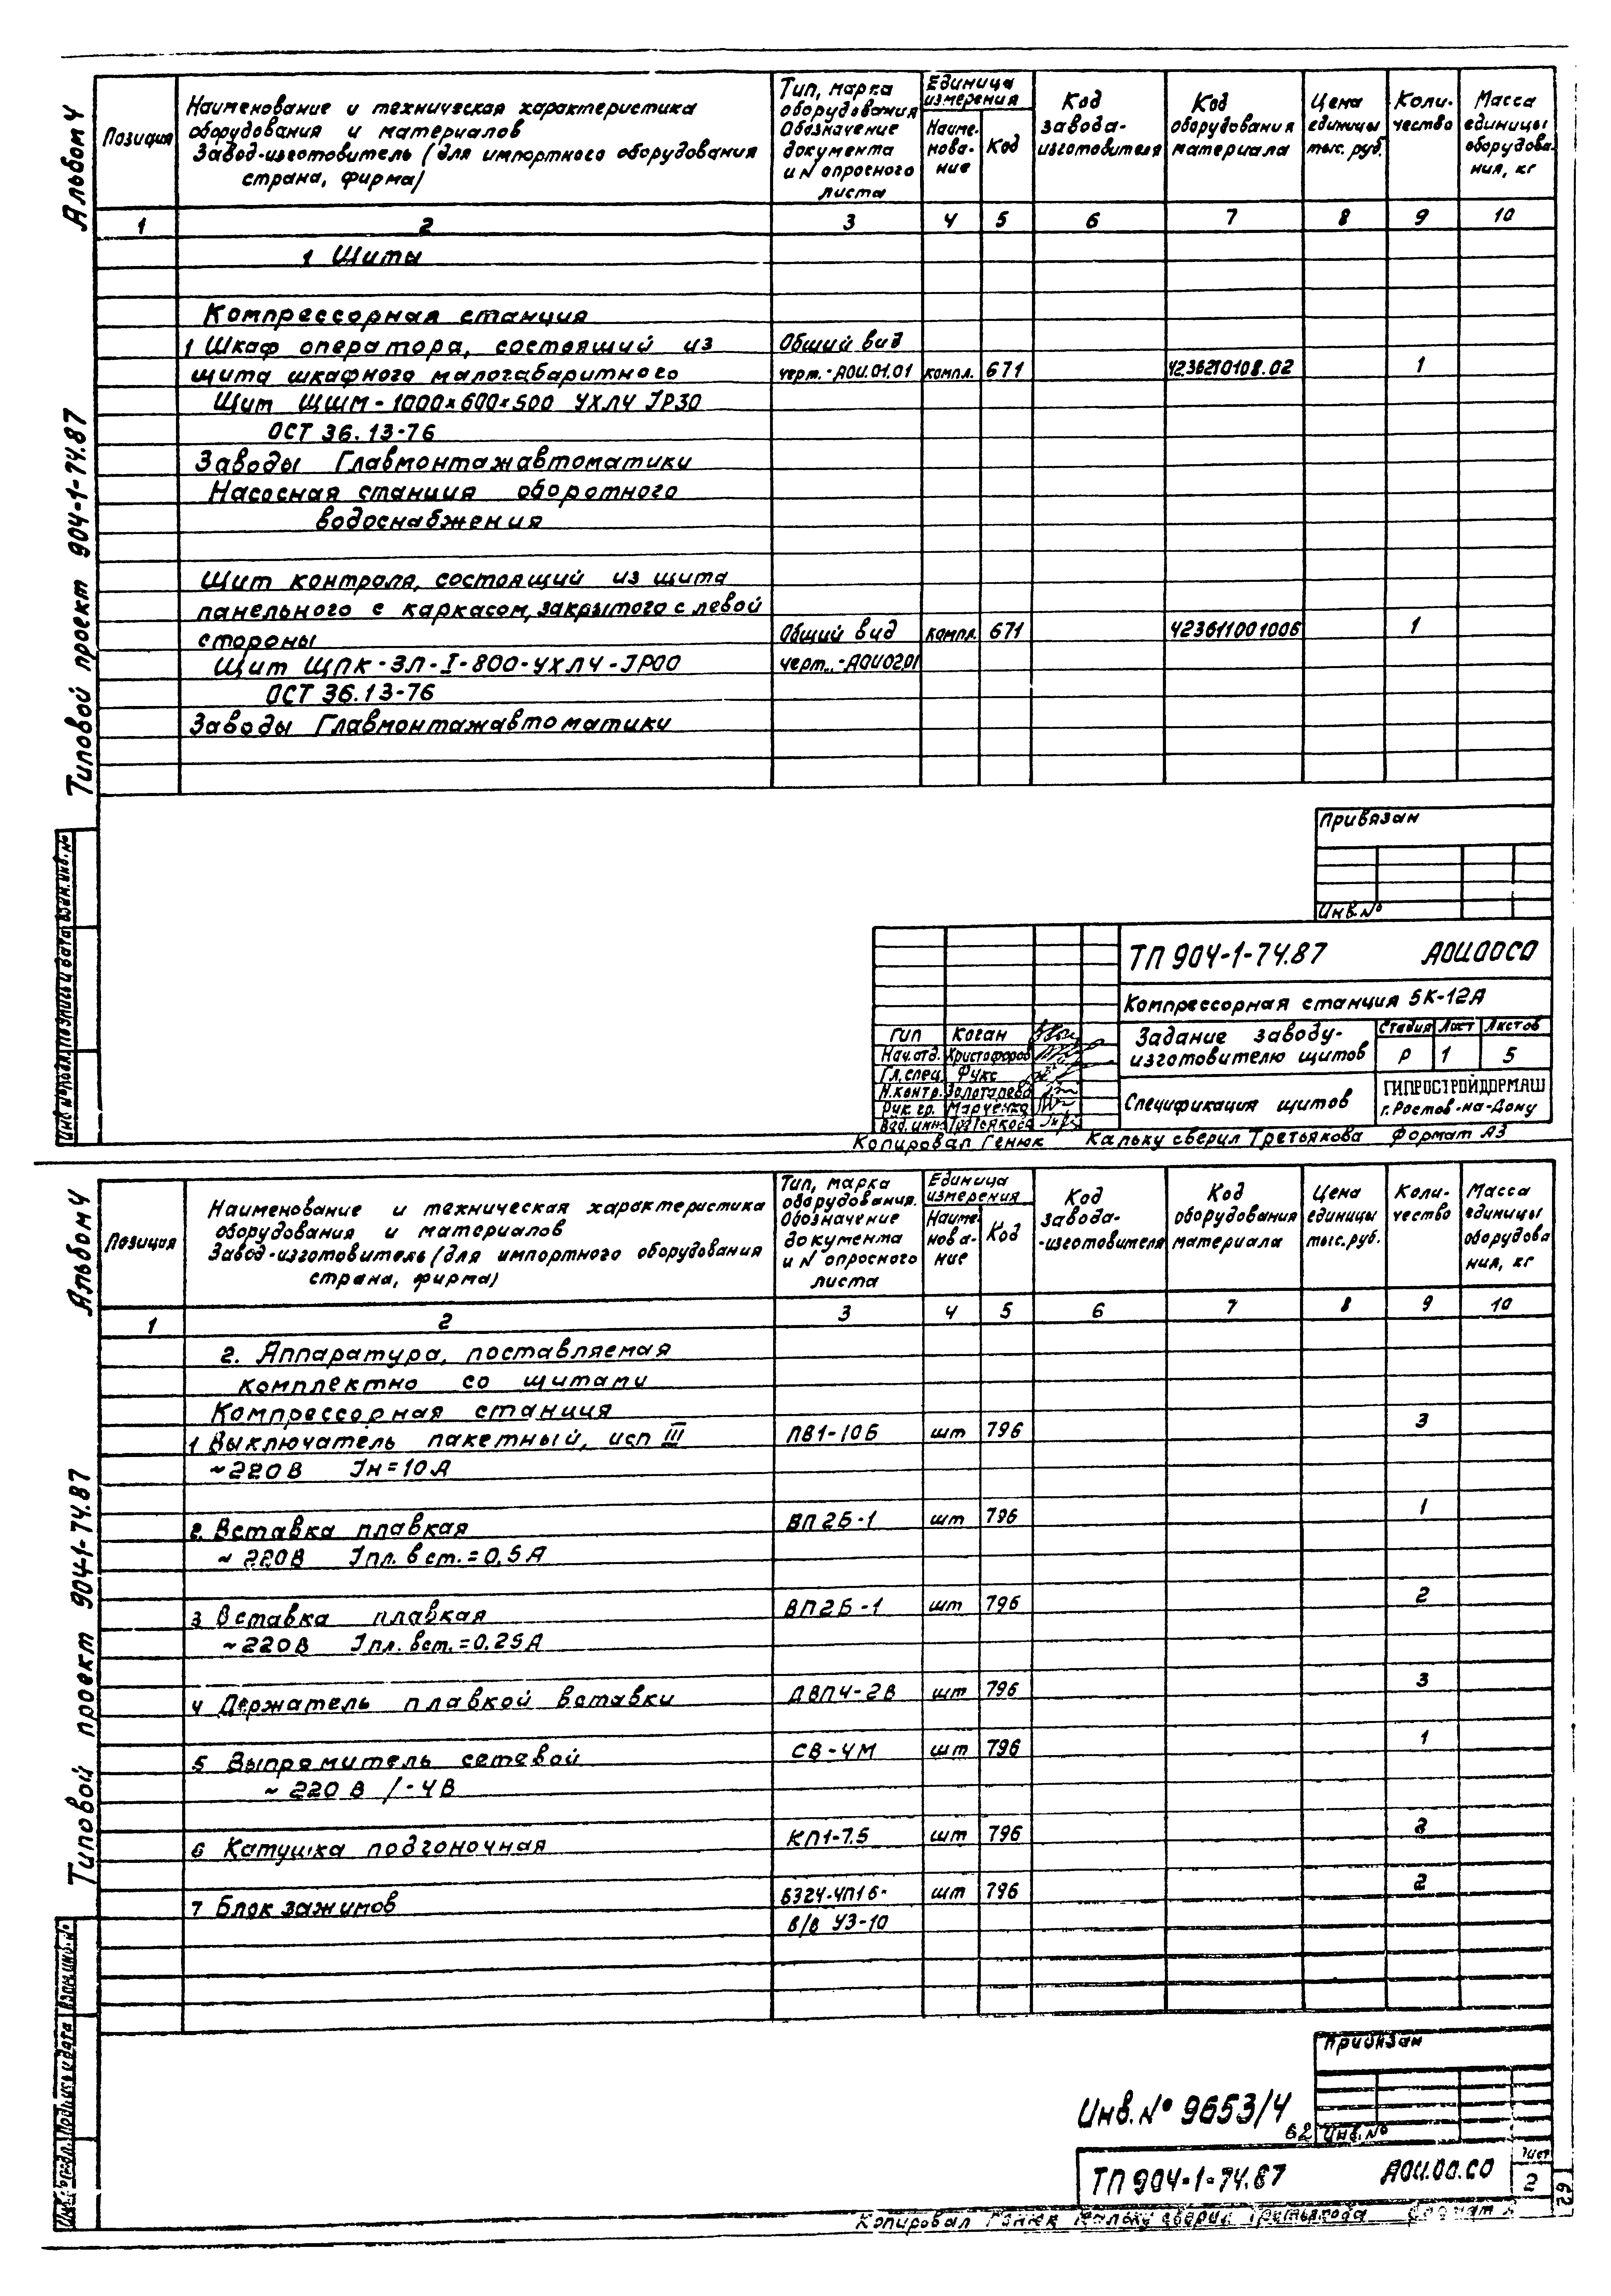 Альбом 4
Типовой проект 904-1-74.87
Позиция
Наименование и техническая характеристика
оборудования и материалов
Завод-изготовитель (для импортного оборудования
страна, фирма)
Тип, марка
оборудования
Обозначение
документа
и N опросного
листа
Единица
измерения
Наиме-
нова-
ние
Код
Код
завода-
изготовителя
Код
оборудования
материала
Цена
единицы
тыс. руб.
Коли-
чество
Масса
единицы
оборудова-
ния, кг
1 2 3 4 5 6 7 8 9 10
1 Щиты
Компрессорная станция
1 Шкаф оператора, состоящий из Общий вид
щита шкафного малогабаритного черт.-АОИ.01.01 компл. 671 4236210108.02 1
Щит ЩШМ-1000×600×500 УХЛ4 JP30
ОСТ 36.13-76
Заводы Главмонтажавтоматики
Насосная станция оборотного
водоснабжения
Щит контроля, состоящий из щита
панельного с каркасом, закрытого с левой
стороны Общий вид компл. 671 423611001006 1
Щит ЩПК-ЗЛ-I-800-УХЛ4-JP00 черт..-АОИ0201
ОСТ 36.13-76
Заводы Главмонтажавтоматики
Привязан
Инв.№
ТП 904-1-74.87 АОИ.00СО
Компрессорная станция 5К-12А
ГИП Коган
Нач.отд. Христофоров
Гл.спец. Фукс
Н.контр. Золотарева
Рук. гр. Марченко
Вед. инж. Третьякова
Задание заводу-
изготовителю щитов
Стадия Лист Листов
Р 1 5
Спецификация щитов
ГИПРОСТРОЙДОРМАШ
г. Ростов-на-Дону
Инв.№подл. Подпись и дата Взам.инв.№
Копировал Генюк Кальку сверил Третьякова Формат А3
Альбом 4
Типовой проект 904-1-74.87
Позиция
Наименование и техническая характеристика
оборудования и материалов
Завод-изготовитель (для импортного оборудования
страна, фирма)
Тип, марка
оборудования.
Обозначение
документа
и N опросного
листа
Единица
измерения
Наиме-
нова-
ние
Код
Код
завода-
-изготовителя
Код
оборудования
материала
Цена
единицы
тыс.руб.
Коли-
чество
Масса
единицы
оборудова
ния, кг
1 2 3 4 5 6 7 8 9 10
2. Аппаратура, поставляемая
комплектно со щитами
Компрессорная станция
1 Выключатель пакетный, исп III ПВ1-10Б шт 796 3
~220В Jн=10А
2. Вставка плавкая ВП2Б-1 шт 796 1
~220В Jпл. вст.=0,5А
3 Вставка плавкая ВП2Б-1 шт 796 2
~220В Jпл. вст.=0,25А
4 Держатель плавкой вставки ДВП4-2В шт 796 3
5 Выпрямитель сетевой СВ-4М шт 796 1
~220В /-4В
6 Катушка подгоночная КП1-7.5 шт 796 2
7 Блок зажимов Б324-4П16- шт 796 2
В/В У3-10
Привязан
Инв.№ 9653/4
62 Инв.№
ТП 904-1-74.87 АОИ.00.СО
Лист
2
62
Инв.№ подл. Подпись и дата Взам.инв.№
Копировал Генюк Кальку сверил Третьякова Формат